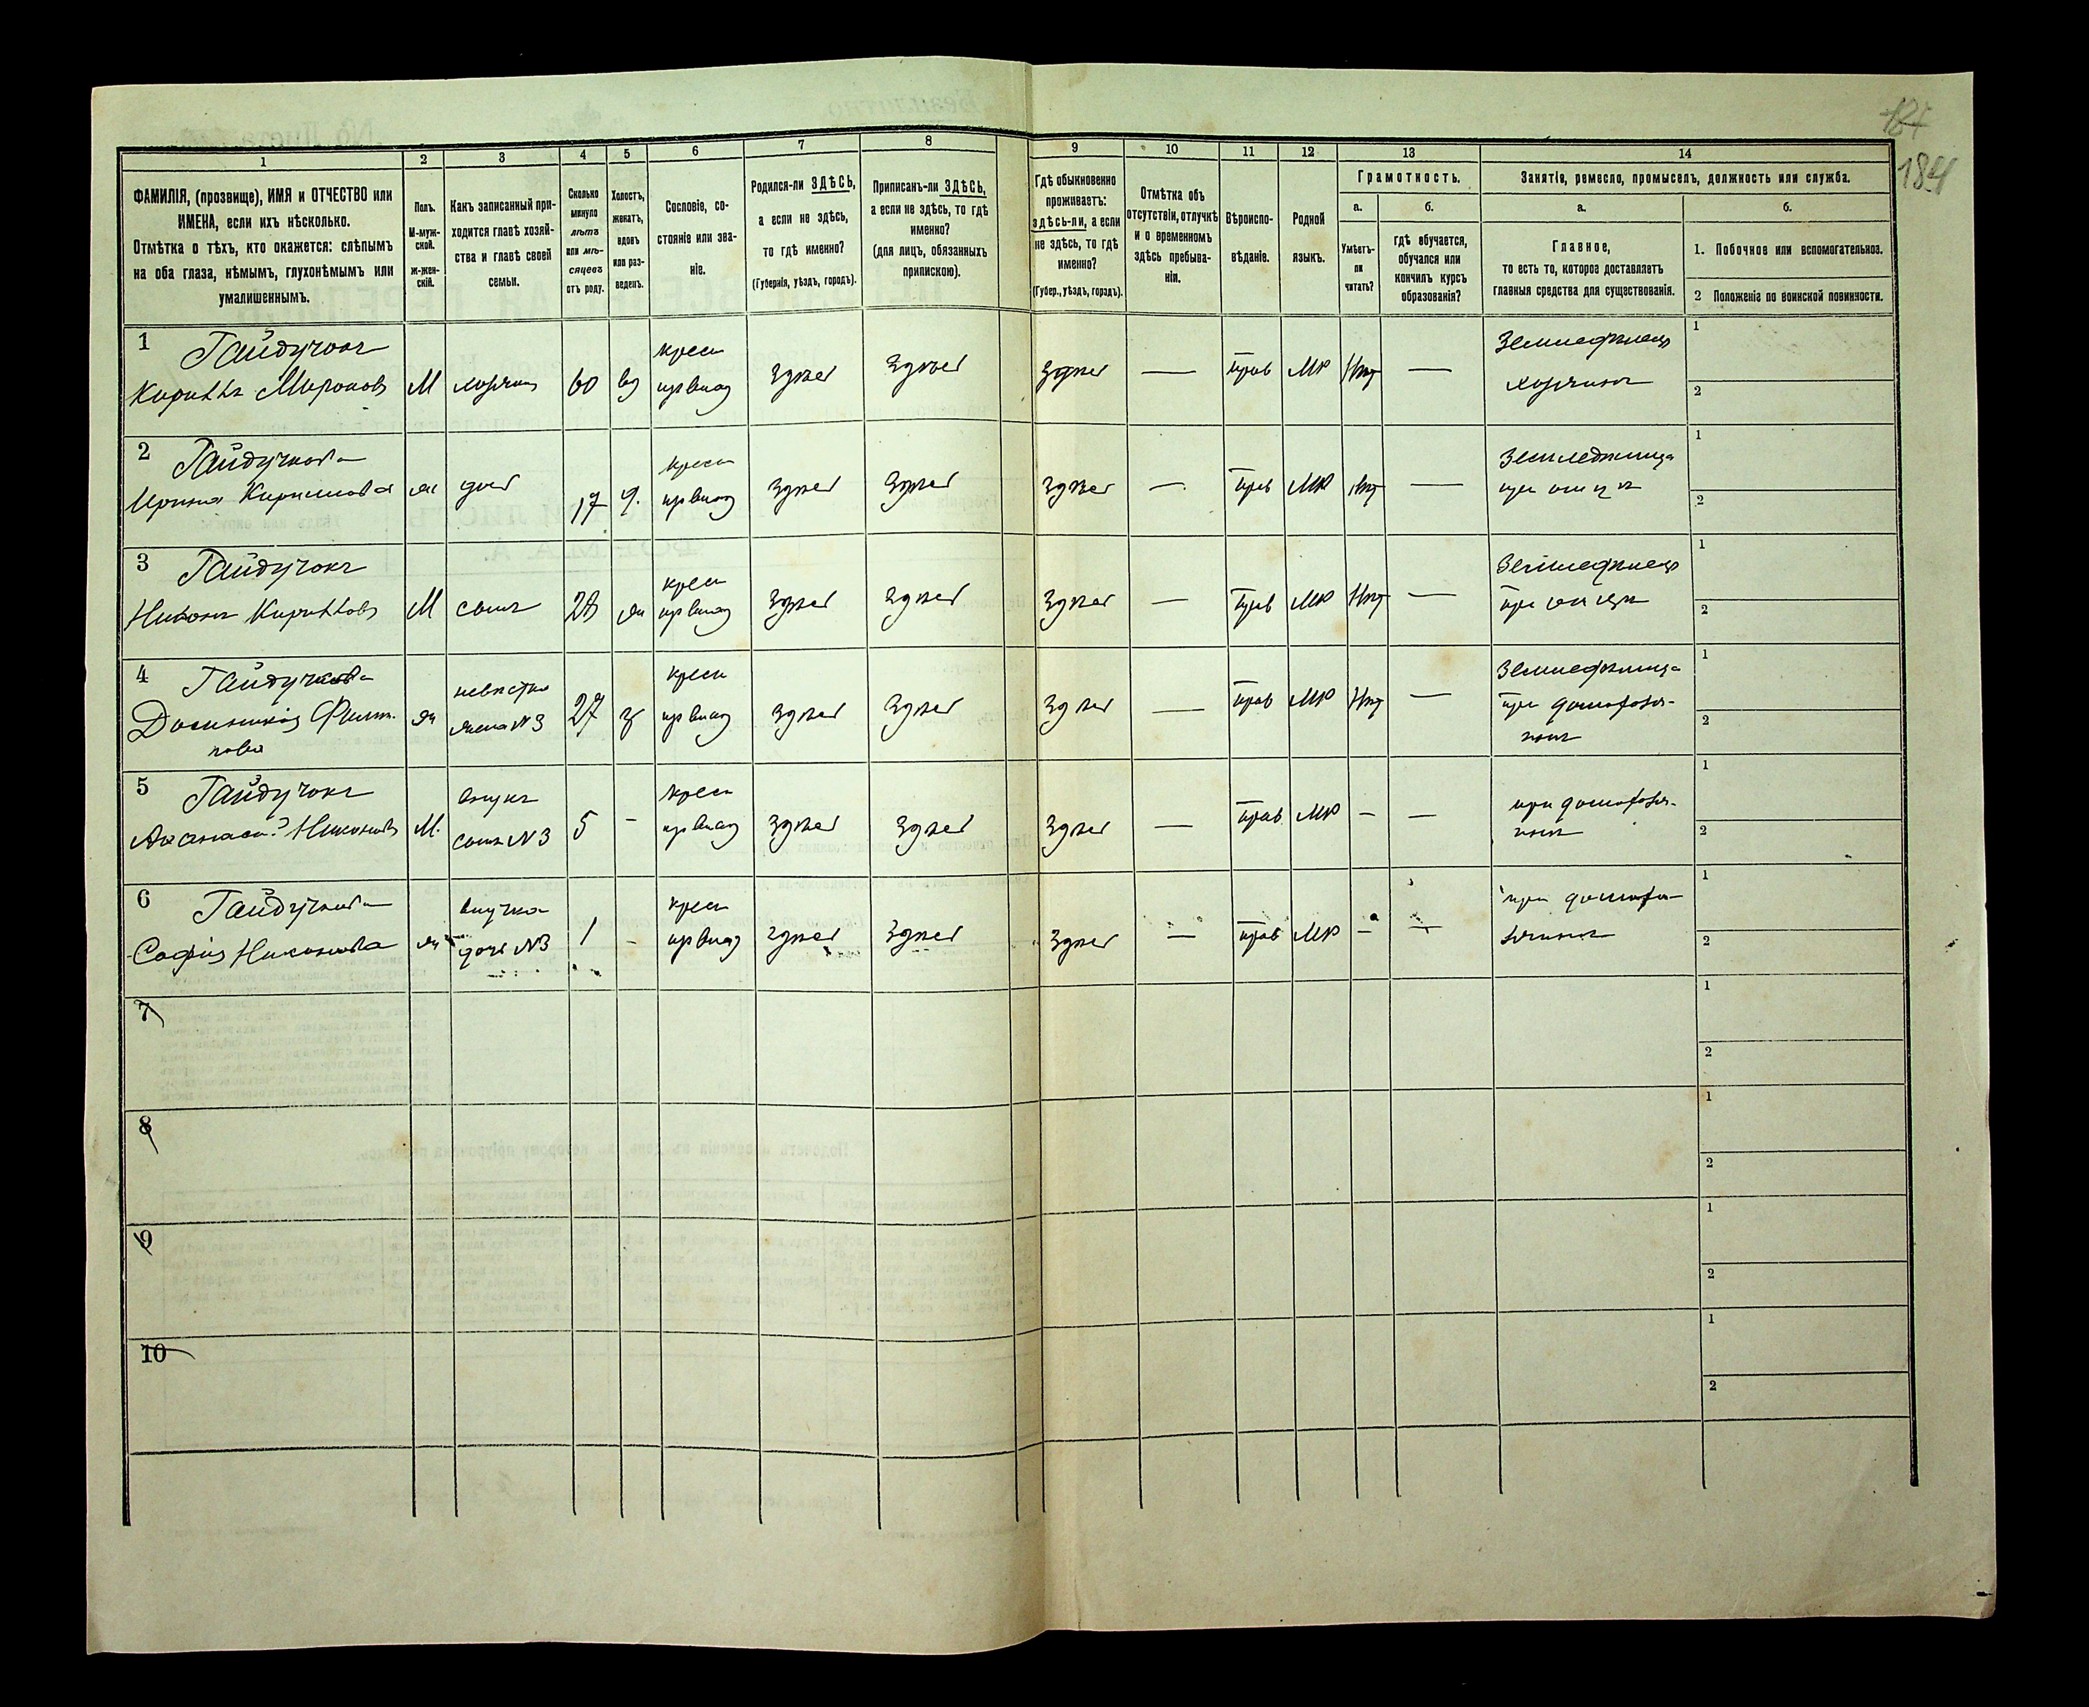 187
184
1 2 3 4 5 6 7 8 9 10 11 12 13 14
ФАМИЛІЯ, (прозвище), ИМЯ и ОТЧЕСТВО или
ИМЕНА, если ихъ нѣсколько.
Отмѣтка о тѣхъ, кто окажется: слѣпымъ
на оба глаза, нѣмымъ, глухонѣмымъ или
умалишеннымъ.
Полъ.
М-муж-
ской.
Ж-жен-
скій.
Какъ записанный при-
ходится главѣ хозяй-
ства и главѣ своей
семьи.
Сколько
минуло
лѣтъ
или мѣ-
сяцевъ
отъ роду.
Холостъ,
женатъ,
вдовъ
или раз-
веденъ.
Сословіе, со-
стояніе или зва-
ніе.
Родился-ли ЗДѢСЬ,
а если не здѣсь,
то гдѣ именно?
(Губернія, уѣздъ, городъ).
Приписанъ-ли ЗДѢСЬ,
а если не здѣсь, то гдѣ
именно?
(для лицъ, обязанныхъ
припискою).
Гдѣ обыкновенно
проживаетъ:
здѣсь-ли, а если
не здѣсь, то гдѣ
именно?
(Губер., уѣздъ, городъ).
Отмѣтка объ
отсутствіи, отлучкѣ
и о временномъ
здѣсь пребыва-
ніи.
Вѣроиспо-
вѣданіе.
Родной
языкъ.
Грамотность.
а.
Умѣетъ-
ли
читать?
б.
гдѣ обучается,
обучался или
кончилъ курсъ
образованія?
Занятіе, ремесло, промыселъ, должность или служба.
а.
Главное,
то есть то, которое доставляетъ
главныя средства для существованія.
б.
1. Побочное или вспомогательное.
2 Положеніе по воинской повинности.
1 Гайдучокъ
Кириллъ Мироновъ М хозяинъ 60 вд крест здѣсь здѣсь здѣсь — прав МР Нѣт — Земледѣлецъ
хозяинъ
1
2
2 Гайдучкова
Ирина Кириллова ж дочь 17 крест здѣсь здѣсь здѣсь — прав МР Нѣт — Земледѣлица
при отцѣ
1
2
3 Гайдучокъ
Никонъ Кирилловъ М сынъ 28 ж крест здѣсь здѣсь здѣсь — прав МР Нѣт — Земледѣлецъ
при отцѣ
1
2
4 Гайдучкова
Филип-
пова ж невѣстка
жена №3 27 з крест здѣсь здѣсь здѣсь — прав МР Нѣт — Земледѣлица
при домохозя-
инѣ
1
2
5 Гайдучокъ
Никоновъ М. внукъ
сынъ №3 5 - крест здѣсь здѣсь здѣсь — прав МР — — при домохозя-
инѣ
1
2
6 Гайдучкова
Софія Никонова ж внучка
дочь №3 1 - крест здѣсь здѣсь здѣсь — прав МР — — при домохо-
зяинѣ
1
2
7
1
2
8
1
2
9
1
2
10
1
2